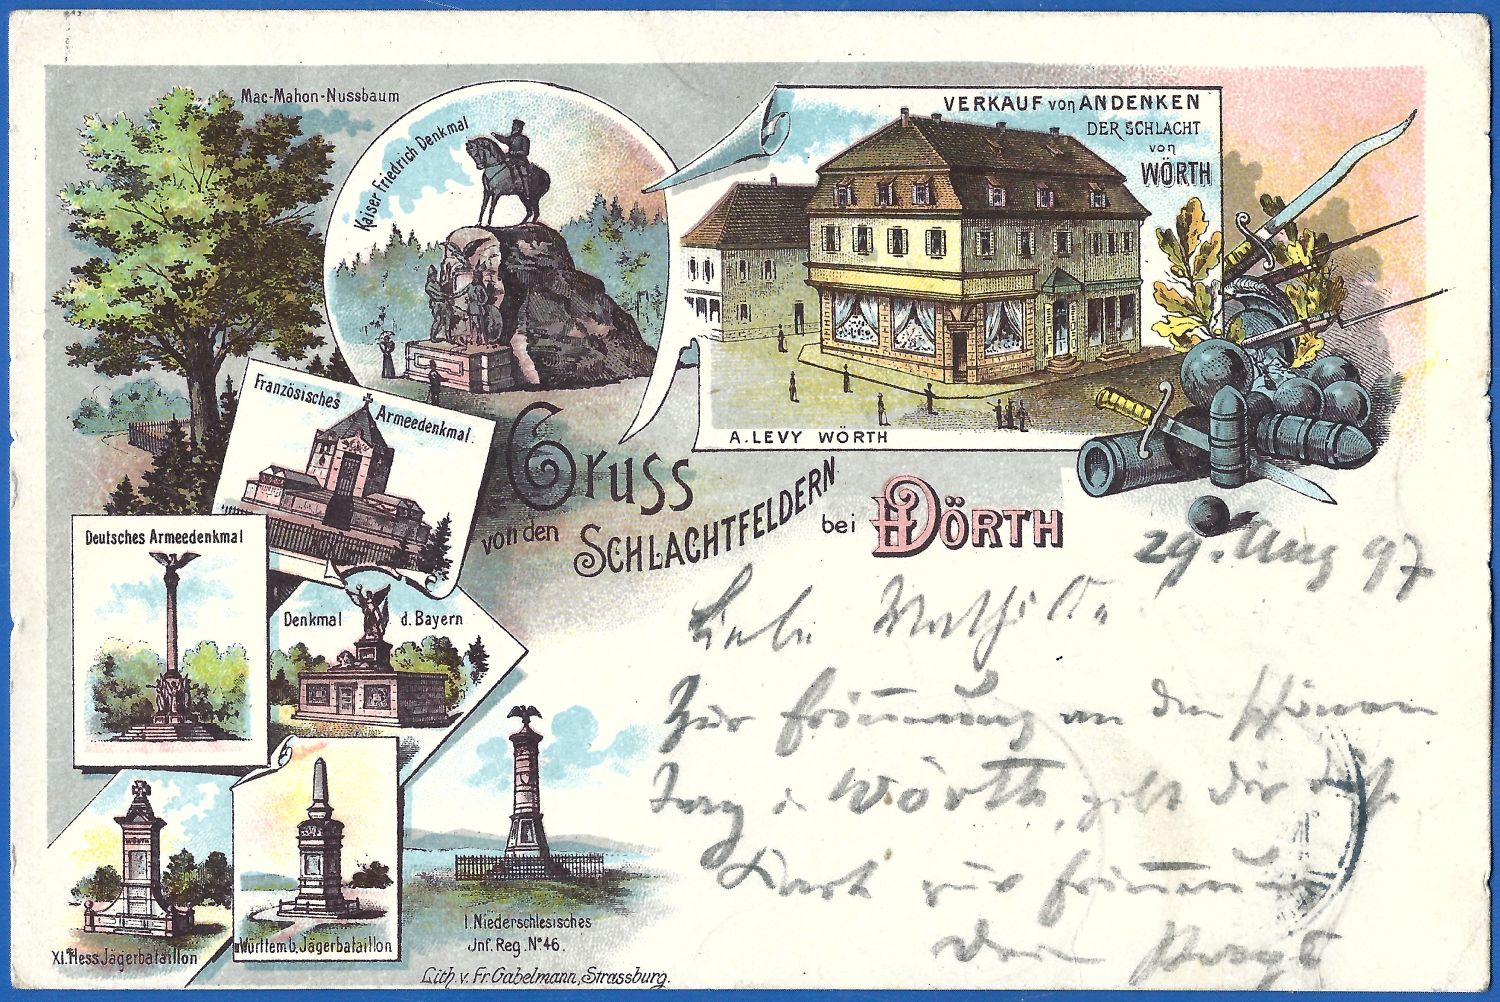 Mac-Mahon-Nussbaum
Kaiser Friedrich Denkmal
VERKAUF von ANDENKEN
DER SCHLACHT
von
WÖRTH
A. LEVY WÖRTH
Französisches Armeedenkmal.
Gruss
von den SCHLACHTFELDERN bei WÖRTH
Deutsches Armeedenkmal
Denkmal d. Bayern
XI. Hess. Jägerbataillon
Württemb. Jägerbataillon
I. Niederschlesisches
Jnf. Reg. N° 46.
Lith. v. Fr. Gabelmann, Strassburg.
29. Aug 97
Liebe Mathilde
Zur Erinnerung an den schönen
Tag in Wörth, gilt Dir diese
Karte zur Erinnerung
Dein